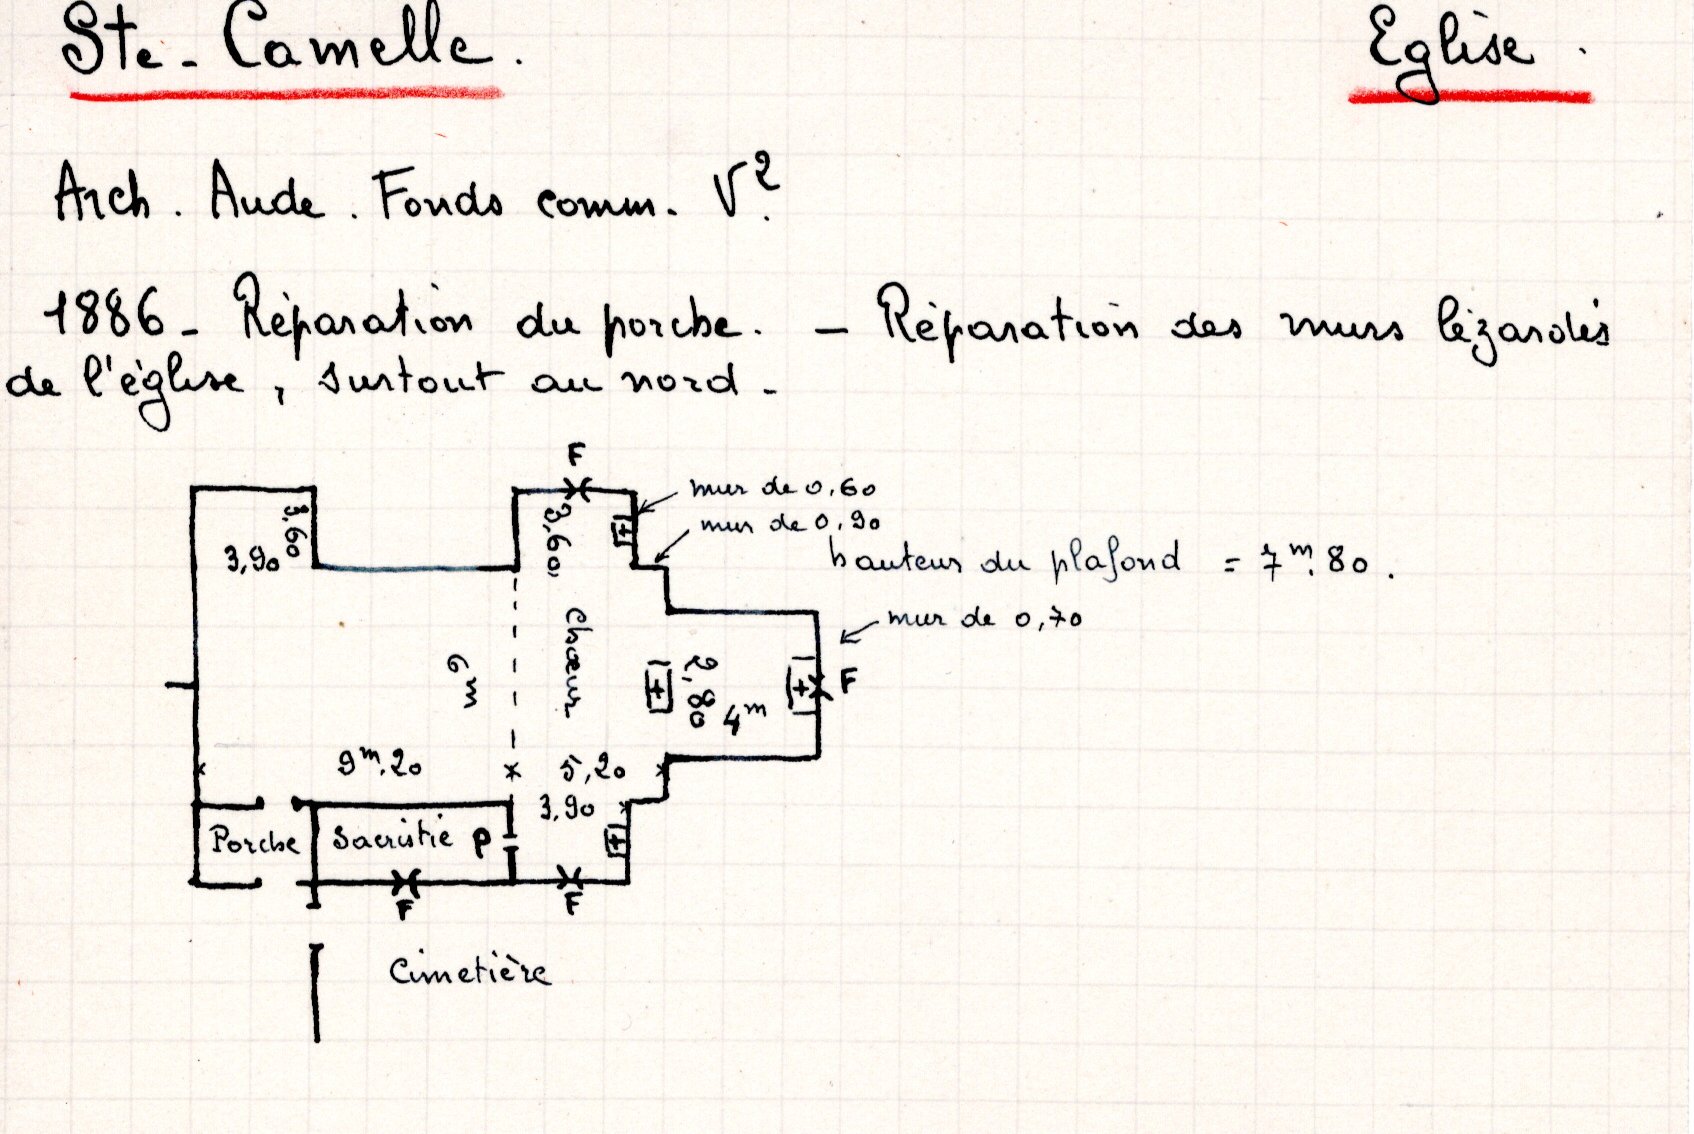 Ste. Camelle.
Eglise.
Arch. Aude. Fonds comm. V².
1886 - Réparation du porche. - Réparation des murs lézardés
de l'église, surtout au nord -
F
mur de 0,60
mur de 0,90
3,60
3,90
3,60
hauteur du plafond = 7m.80.
mur de 0,70
Chœur
6m
2,80
4m
F
9m.20
5,20
3,90
Porche
Sacristie
P
F
F
Cimetière